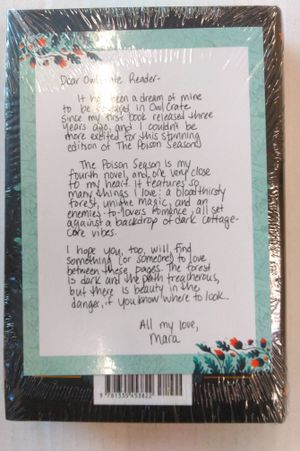 Dear OwlCrate Reader-
It has been a dream of mine
to be featured in OwlCrate
since my first book released three
years ago, and I couldn't be
more excited for this stunning
edition of The Poison Season.
The Poison Season is my
fourth novel, and one very close
to my heart. It features so
many things I love: a bloodthirsty
forest, unique magic, and an
enemies-to-lovers romance, all set
against a backdrop of dark cottage-
core vibes.
I hope you, too, will find
something (or someone) to love
between these pages. The forest
is dark and the path treacherous,
but there is beauty in the
danger, if you know where to look...
All my love,
Mara
9 781335 453822